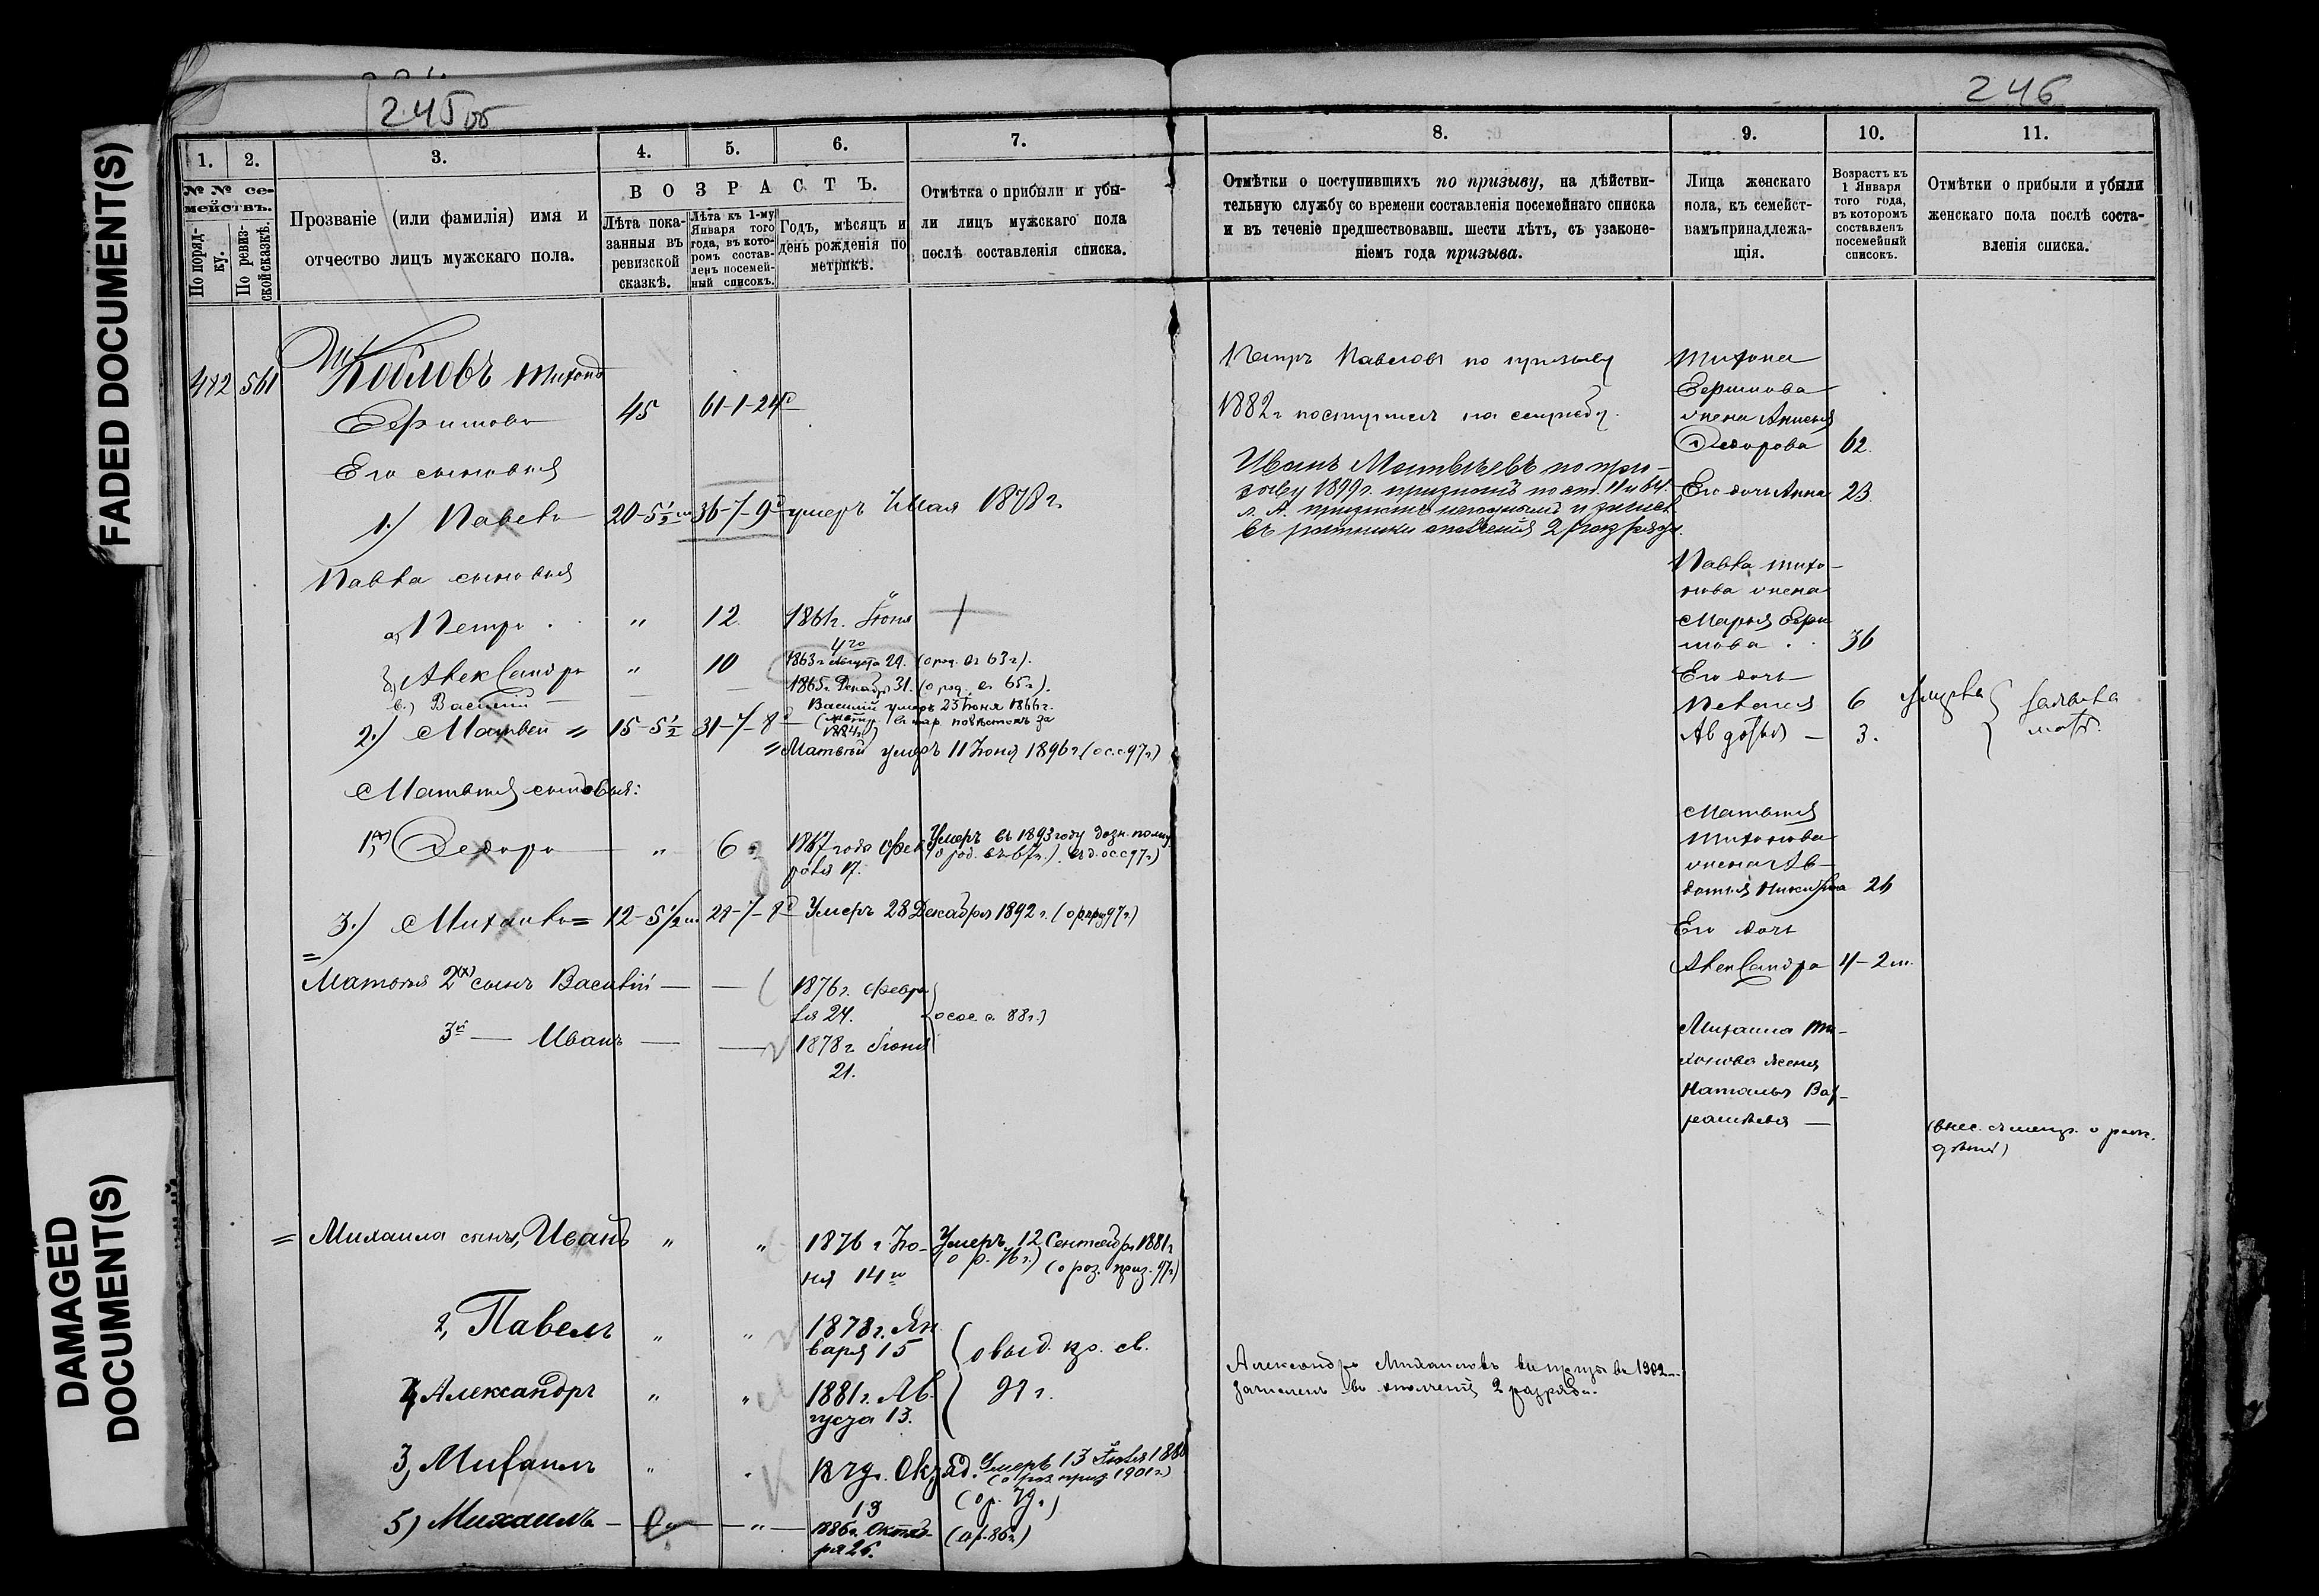 FADED DOCUMENT(S)
DAMAGED
DOCUMENT(S)
245 об
246
1.
2.
3.
4.
5.
6.
7.
№ № се-
мействъ.
По поряд-
ку.
По ревиз-
ской сказкѣ.
Прозваніе (или фамилія) имя и
отчество лицъ мужскаго пола.
ВОЗРАСТЪ.
Лѣта пока-
занныя въ
ревизской
сказкѣ.
Лѣта къ 1-му
Января того
года, въ кото-
ромъ состав-
ленъ посемей-
ный списокъ.
Годъ, мѣсяцъ и
день рожденія по
метрикѣ.
Отмѣтка о прибыли и убы-
ли лицъ мужскаго пола
послѣ составленія списка.
482 561
Кобловъ Тихонъ
Ефимовъ 45 61-1-24
Его сыновья
1.) Павелъ 20-5½ 36-7-9 умеръ 1878 г.
Павла сыновья
а) Петръ " 12 1861 г. Іюня
4го
б) Александръ " 10 1863 г. Августа 29. (о род. въ 63 г).
в.) Василій — — 1865 г. Декабр. 31. (о род. въ 65 г).
Василій умеръ 23 Іюня 1866 г.
2.) Матвей = 15-5½ 31-7-8
1884 г.)
= Матвѣй умеръ 11 Іюня 1896 г (о.с.с 97 г)
Матвѣя сыновья:
1) Федоръ — " 6 1867 года Фев-
раля 17.
Умеръ въ 1893 году
(о род. въ 67 г.)
3.) Михаилъ = 12-5½ 28-7-8 Умеръ 28 Декабря 1892 г.
Матвѣя 2й сынъ Василій — — 1876 г. Февра
ля 24.
88 г.)
3й — Иванъ — — 1878 г Іюня
21.
= Михаила сынъ, Иванъ " " 1876 г. Ію-
ня 14го
Умеръ 12 Сентября 1881 г
(о р. 76 г.) (о роз. приз. 97 г)
2, Павелъ " " 1878 г. Ян
варя 15
97 г.
4, Александръ " " 1881 г. Ав-
густа 13.
3, Михаилъ " 1879 г. Октяб.
13
Умеръ 13 Іюля 1880
(о роз. приз 1901 г)
(о р. 79 г.)
5) Михаилъ — — " — 1886 г. Октяб-
ря 26.
(о р. 86 г.)
8.
9.
10.
11.
Отмѣтки о поступившихъ по призыву, на дѣйстви-
тельную службу со времени составленія посемейнаго списка
и въ теченіе предшествовавш. шести лѣтъ, съ узаконе-
ніемъ года призыва.
Лица женскаго
пола, къ семейст-
вамъ принадлежа-
щія.
Возрастъ къ
1 Января
того года,
въ которомъ
составленъ
посемейный
списокъ.
Отмѣтки о прибыли и убыли
женскаго пола послѣ соста-
вленія списка.
Петръ Павловъ по призыву
1882 г поступилъ на службу.
Иванъ Матвѣевъ по при-
зыву 1899 г. признанъ по ст. 11 и 64.
л. А. признанъ негоднымъ и зачисл.
въ ратники ополченія 2 разряда.
Александръ Михаиловъ въ 1902 г.
зачисленъ въ ополченіе 2 разряда.
Тихона
Ефимова
жена Аксинья
Федорова 62.
Его дочь Анна 23.
Павла Тихо-
нова жена
Марья Ефи
мова . 36
Его дочь
Пелагея 6
Авдотья — 3.
Матвѣя
Тихонова
жена Ав-
дотья Никитина 26
Его дочь
Александра 4-2 м.
Михаила Ти-
хонова жена
Наталья Вар-